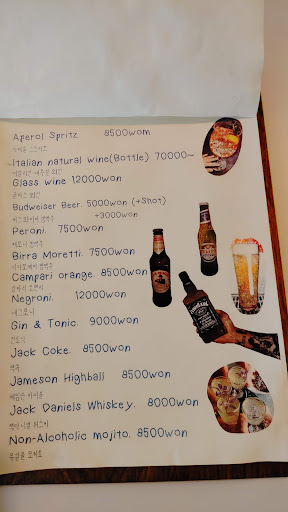 Aperol Spritz 8500wom
아페롤 스프리츠
~Italian natural wine(Bottle) 70000~
이탈리안 내추럴 와인
Glass wine 12000won
글라스 와인
Budweiser Beer. 5000won (+Shot)
+3000won
버드와이저 맥주
Peroni. 7500won
페로니 맥주
Birra Moretti. 7500won
Campari orange. 8500won
캄파리 오렌지
Negroni. 12000won
네그로니
Gin & Tonic. 9000won
진토닉
Jack Coke. 8500won
잭콕
Jameson Highball 8500won
제임슨 하이볼
Jack Daniels Whiskey. 8000won
잭다니엘 위스키
Non-Alcoholic mojito. 8500won
무알콜 모히또